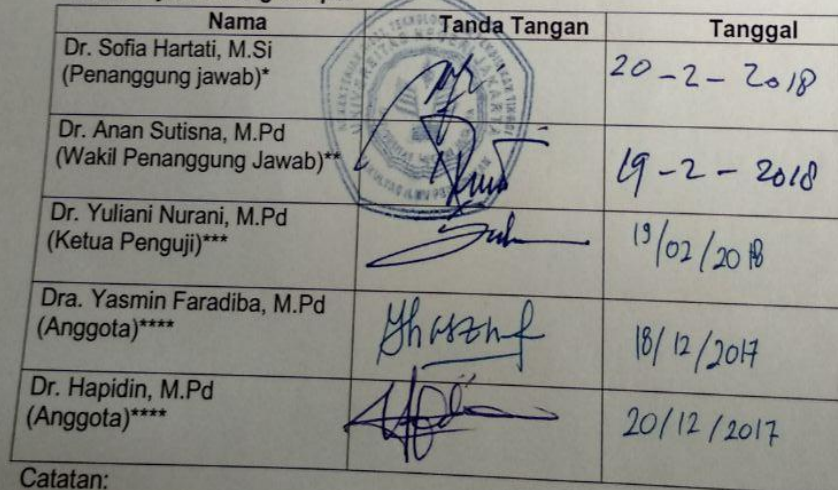 Nama Tanda Tangan Tanggal
Dr. Sofia Hartati, M.Si
(Penanggung jawab)* 20-2-2018
Dr. Anan Sutisna, M.Pd
(Wakil Penanggung Jawab)** 19-2-2018
Dr. Yuliani Nurani, M.Pd
(Ketua Penguji)*** 19/02/2018
Dra. Yasmin Faradiba, M.Pd
(Anggota)**** 18/12/2017
Dr. Hapidin, M.Pd
(Anggota)**** 20/12/2017
Catatan:
UNIVERSITAS NEGERI JAKARTA